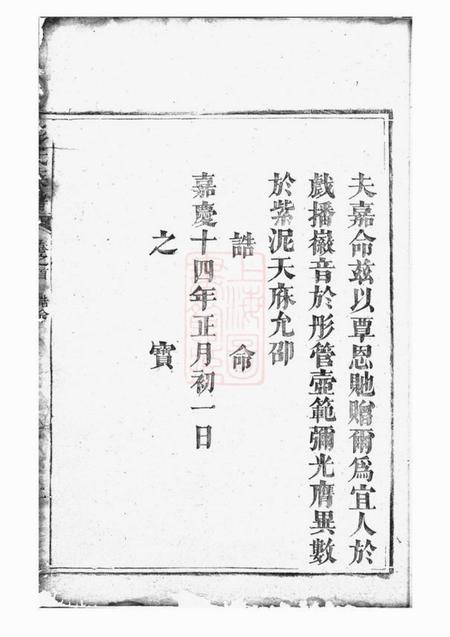 夫嘉命茲以覃恩貤贈爾為宜人於
戲播徽音於彤管壼範彌光膺異數
於紫泥天庥允卲
誥命
嘉慶十四年正月初一日
之寶